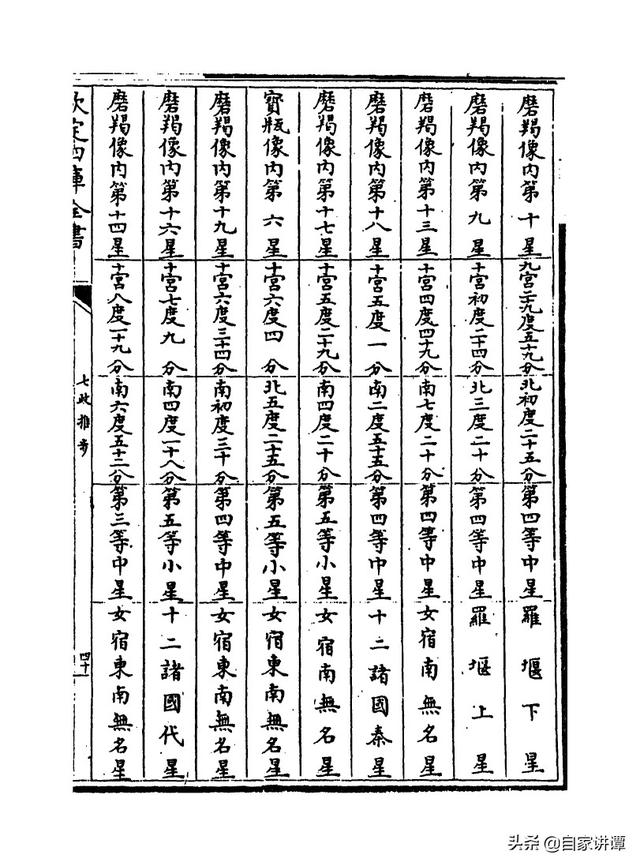 磨羯像內第十星 九宮二十九度五十九分 北初度二十五分 第四等中星 羅堰下星
磨羯像內第九星 十宮初度二十四分 北三度二十分 第四等中星 羅堰上星
磨羯像內第十三星 十宮四度四十九分 南七度二十分 第四等中星 女宿南無名星
磨羯像內第十八星 十宮五度一分 南二度五十五分 第四等中星 十二諸國秦星
磨羯像內第十七星 十宮五度二十九分 南四度二十分 第五等小星 女宿南無名星
寶瓶像內第六星 十宮六度四分 北五度二十五分 第五等小星 女宿東南無名星
磨羯像內第十九星 十宮六度三十四分 南初度三十分 第四等中星 女宿東南無名星
磨羯像內第十六星 十宮七度九分 南四度一十八分 第五等小星 十二諸國代星
磨羯像內第十四星 十宮八度一十九分 南六度五十二分 第三等中星 女宿東南無名星
欽定四庫全書
七政推步
四十
头条 @自家讲谭